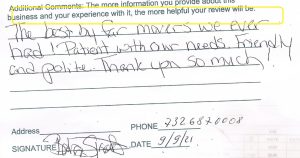 Additional Comments: The more information you provide about this
business and your experience with it, the more helpful your review will be.
The best by far movers we ever
had! Patient with our needs. Friendly
and polite. Thank you so much!
Address PHONE 7326870008
SIGNATURE DATE 9/9/21